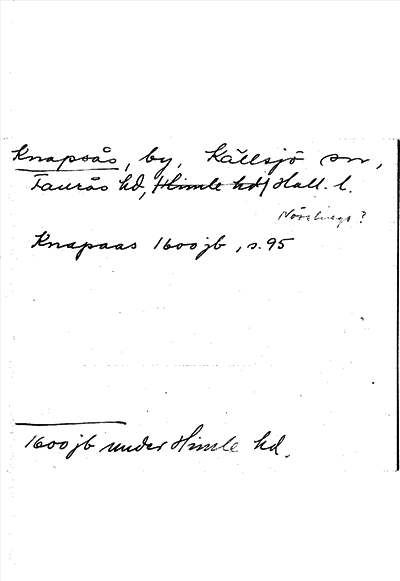 Knapsås, by, Källsjö sn,
Faurås hd, Himle hd, Hall. l.
?
Knapaas 1600 jb, s. 95
1600 jb under Himle hd.